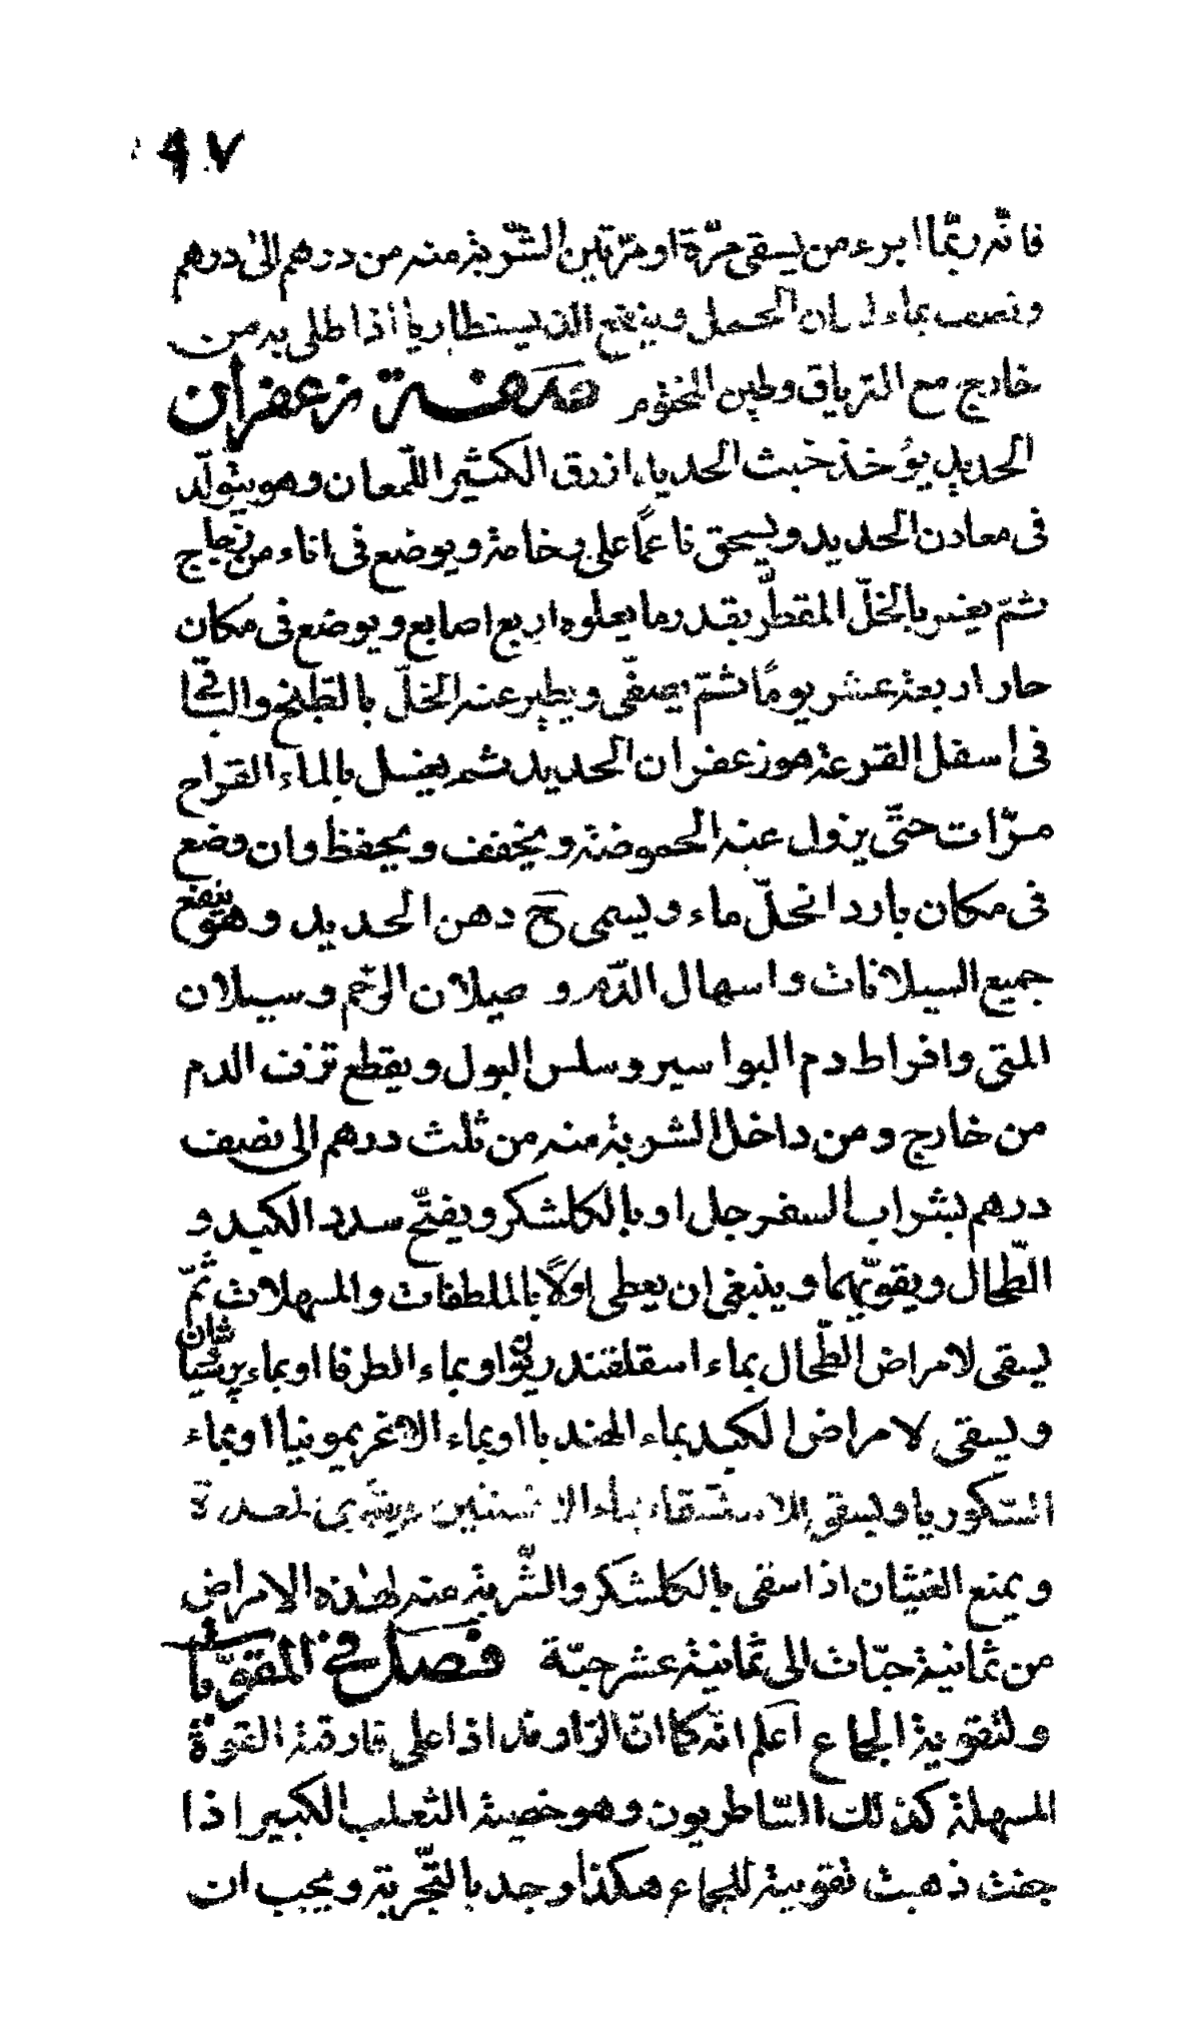 ٩٧
فانّه ربّما ابرء من يسقى مرّة او مرّتين الشّربة منه من درهم الىٰ درهم
ونصف بماء لسان الحمل وينفع الذيسنطاريا اذا طلى به من
خارج مع الترياق وطين المختوم صفة زعفران
الحديد يؤخذ خبث الحديد ازرق الكثير اللّمعان وهو يتولّد
فى معادن الحديد ويسحق ناعمًا على رخامة ويوضع فى اناء من زجاج
ثمّ يغمر بالخلّ المقطّر بقدر ما يعلوه اربع اصابع ويوضع فى مكان
حار اربعة عشر يومًا ثمّ يصفّى ويطير عنه الخلّ بالطبخ والباقى
فى اسفل القرعة هو زعفران الحديد ثم يغسل بالماء القراح
مرّات حتّى يزول عنه الحموضة ويخفف ويحفظ وان وضع
فى مكان بارد انحلّ ماء ويسمى ح دهن الحديد وهو ينفع
جميع السيلانات واسهال الدّم و صيلان الرّحم وسيلان
المنى وافراط دم البواسير وسلس البول ويقطع نزف الدم
من خارج ومن داخل الشربة منه من ثلث درهم الى نصف
درهم بشراب السفرجل او بالكلشكر ويفتّح سدد الكبد و
الطّحال ويقوّيهما وينبغى ان يعطى اولًا بالملطفات والمسهلات ثمّ
يسقى لامراض الطّحال بماء اسقلقندريون او بماء الطرفا او بماء برشياشان
ويسقى لامراض الكبد بماء الهندبا او بماء الاغريمونيا او بماء
السنكوريا ويسقى للاستسقاء بماء الافسنتين ويقوى المعدة
ويمنع الغثيان اذا سقى بالكلشكر والشّربة منه لهذه الامراض
من ثمانية حبّات الى ثمانية عشر حبّة فصل فى المقوّيات
ولتقوية الجماع اعلم انّه كما انّ الرّاوند اذا على فارقة القوة
المسهلة كذلك السّاطريون وهو خصية الثعلب الكبير اذا
جفت ذهبت تقويته للجماع هكذا وجد بالتّجربة ويجب ان